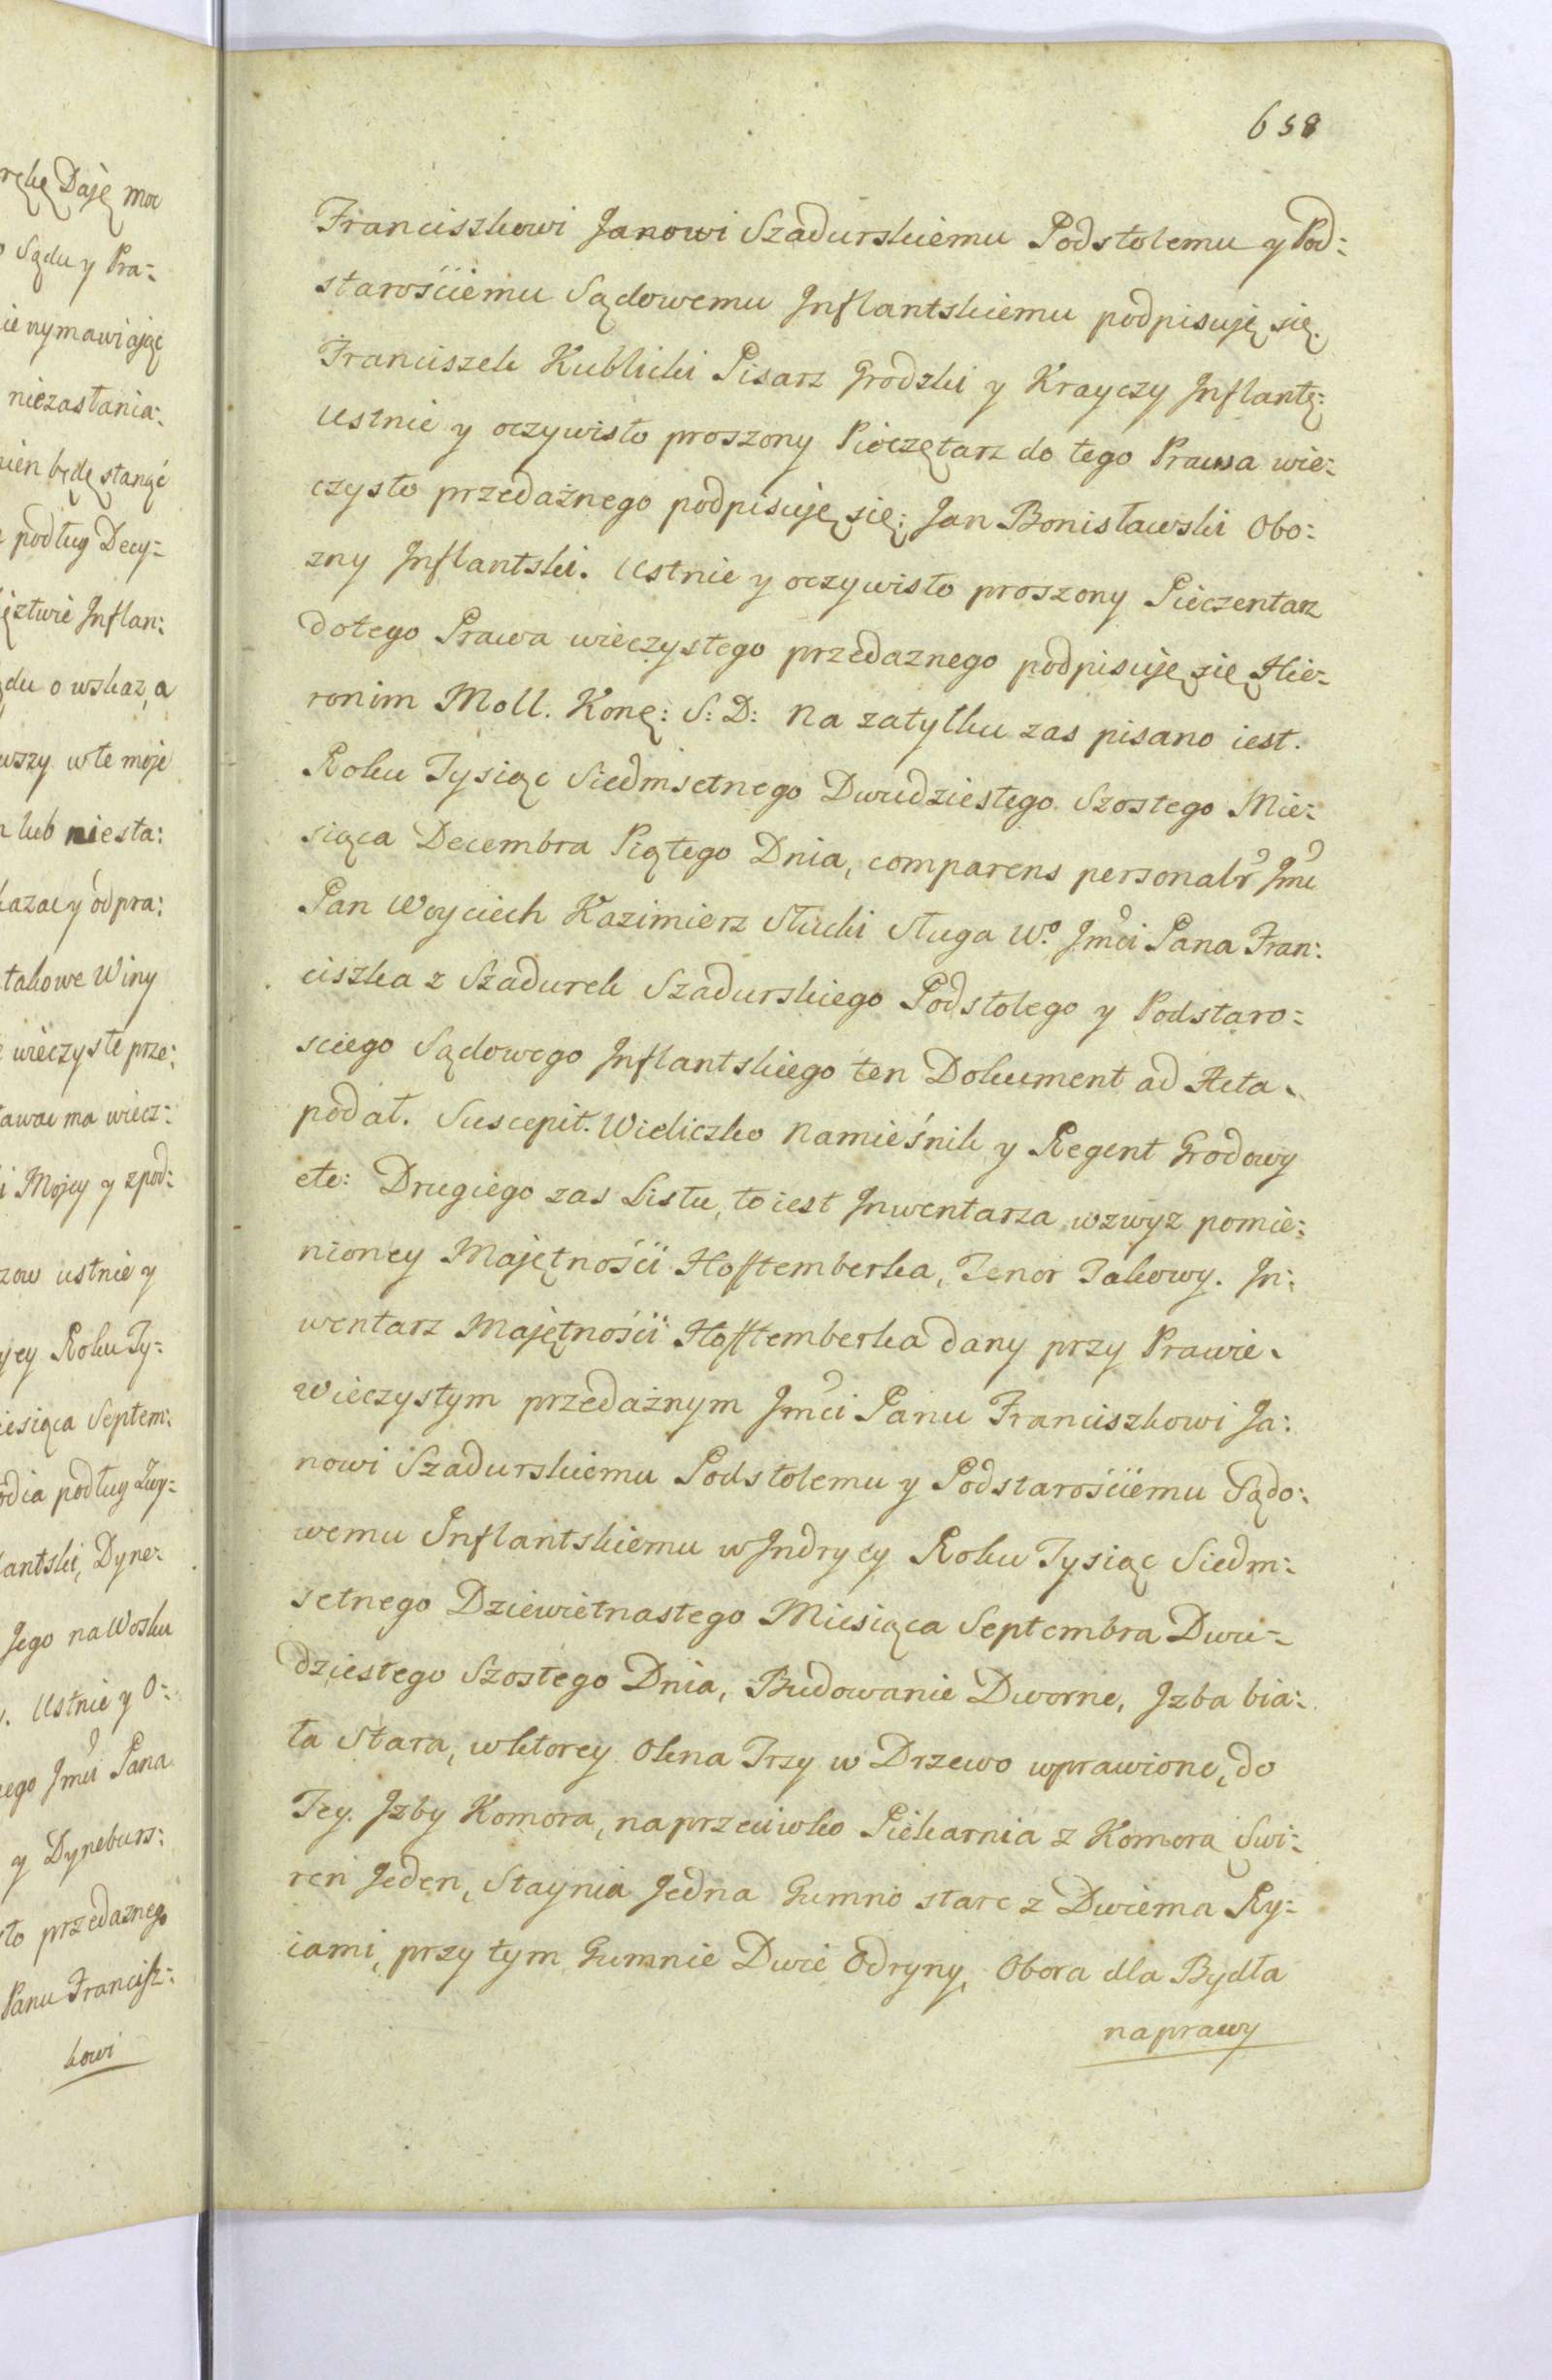 rękę Daję moc
Sądu y Pra-
ie nymawiając
niezastania:
nien będę stanąć
podług Decy-
ęztwie Inflan:
du o wskaz, a
wszy w te moje
lub niesta:
kazac y odpra:
takowe Winy
wieczyste prze:
awac ma wiecz:
i Mojey y zpod:
zow ustnie y
jey Roku Ty-
iesiąca Septem:
odia podług Zwy-
antski, Dyne-
Jego na Wosku
Ustnie y O-
ego Jmći Pana
y Dyneburs:
to przedaznego
Panu Francisz:
kowi
658
Franciszkowi Janowi Szadurskiemu Podstolemu y Pod:
starośćiemu Sądowemu Inflantskiemu podpisuję się.
Franciszek Kublicki Pisarz Grodzki y Krayczy Inflantę:
Ustnie y oczywisto proszony Pieczętarz do tego Prawa wie:
czysto przedażnego podpisuję się: Jan Bonisławski Obo:
zny Inflantski. Ustnie y oczywisto proszony Pieczentarz
dotego Prawa wieczystego przedaznego podpisuję się Hie-
ronim Moll. Konę: S: D: Na zatyłku zas pisano iest.
Roku Tysiąc Siedmsetnego Dwudziestego Szostego Mie-
siąca Decembra Piątego Dnia, comparens personalr Jmć
Pan Woyciech Kazimierz Słucki Sługa Wo. Jmći Pana Fran:
ciszka z Szadurek Szadurskiego Podstolego y Podstaro:
sciego Sądowego Inflantskiego ten Dokument ad Acta
podał. Suscepit. Wieliczko Namieśnik y Regent Grodowy
etc: Drugiego zas Listu, to iest Inwentarza wzwyz pomie:
nioney Majętnośći Hofftemberka, Tenor Takowy. In:
wentarz Majętnośći Hofftemberka dany przy Prawie
Wieczystym przedażnym Jmći Panu Franciszkowi Ja:
nowi Szadurskiemu Podstolemu y Podstarośćiemu Sądo:
wemu Inflantskiemu w Indrycy Roku Tysiąc Siedm:
setnego Dziewietnastego Miesiąca Septembra Dwu-
dziestego Szostego Dnia, Budowanie Dworne, Izba bia:
ła Stara, wktorey Okna Trzy w Drzewo wprawione, do
Tey. Izby Komora, naprzeciwko Piekarnia z Komorą Swi:
ren Jeden, Staynia Jedna Gumno stare z Dwiema Ry-
iami, przy tym Gumnie Dwie Odryny, Obora dla Bydła
naprawy